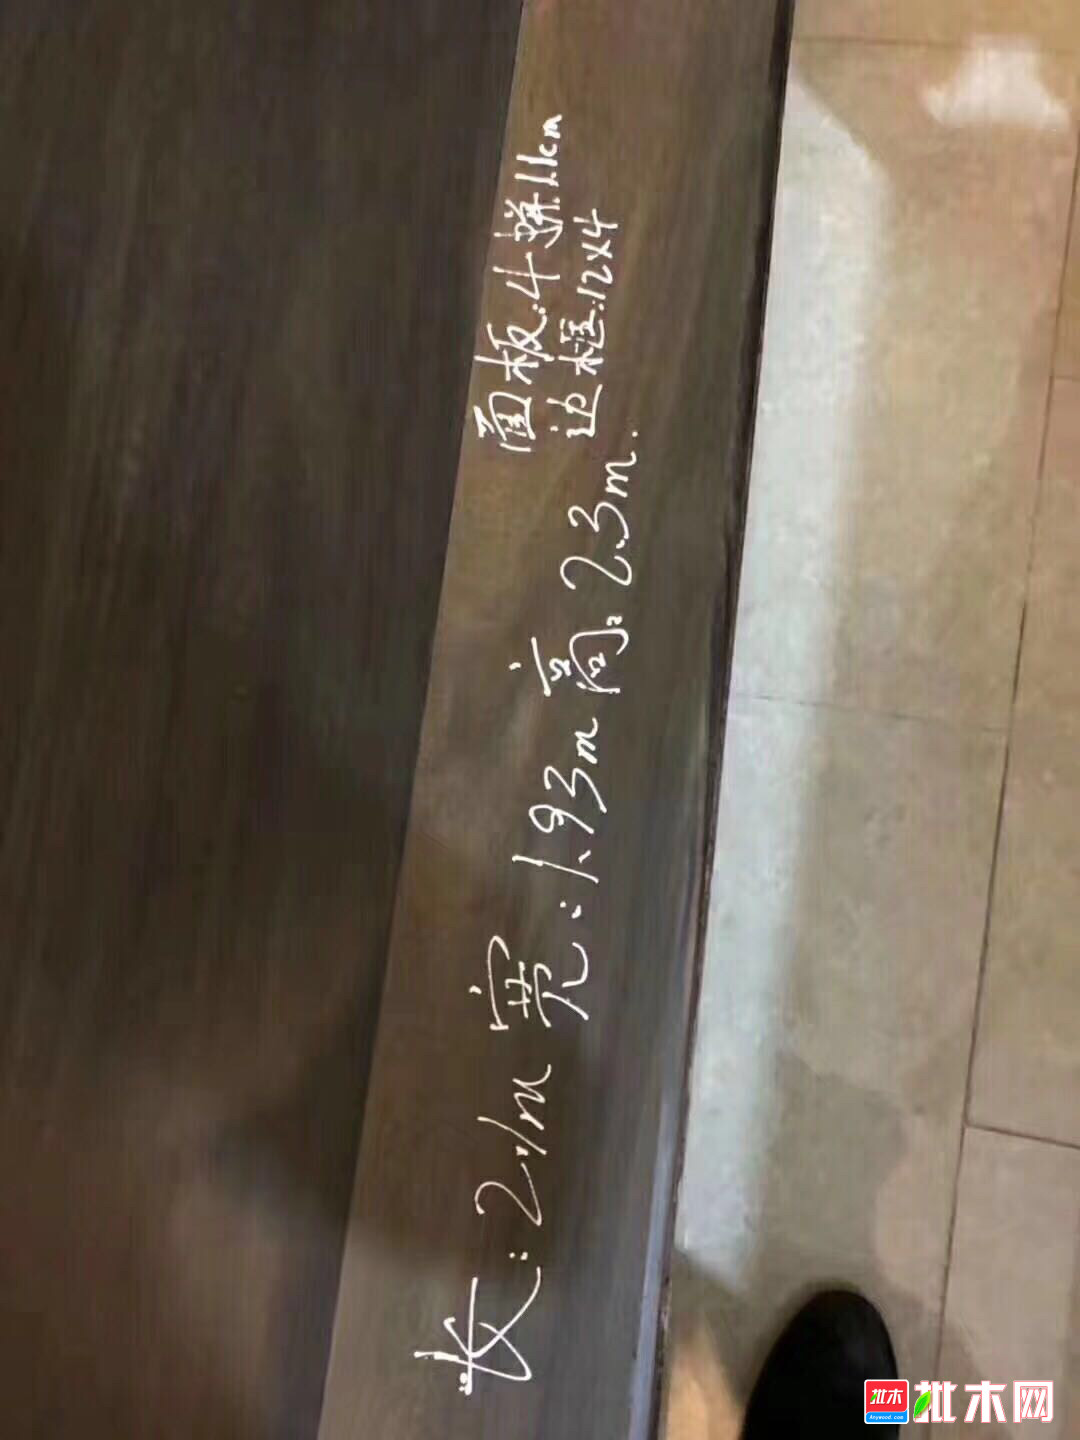 长:2.1m 宽:1.93m 高:2.3m.
面板:4拼.1.1cm
边框:12x4
批木
Anywood.com
批木网